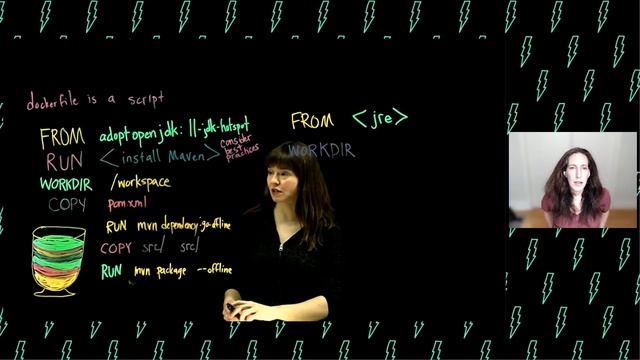 dockerfile is a script
FROM adoptopenjdk:11-jdk-hotspot
RUN <install Maven> consider best practices
WORKDIR /workspace
COPY pom.xml
RUN mvn dependency:go-offline
COPY src/ src/
RUN mvn package --offline
FROM <jre>
WORKDIR